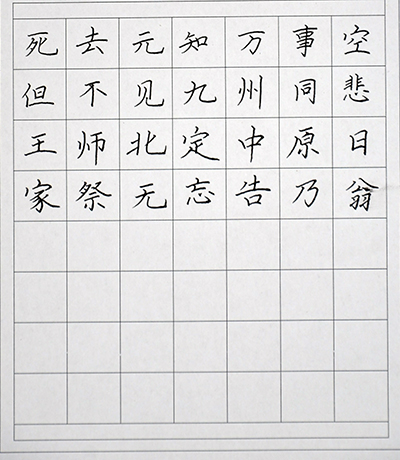 死去元知万事空
但不见九州同悲
王师北定中原日
家祭无忘告乃翁